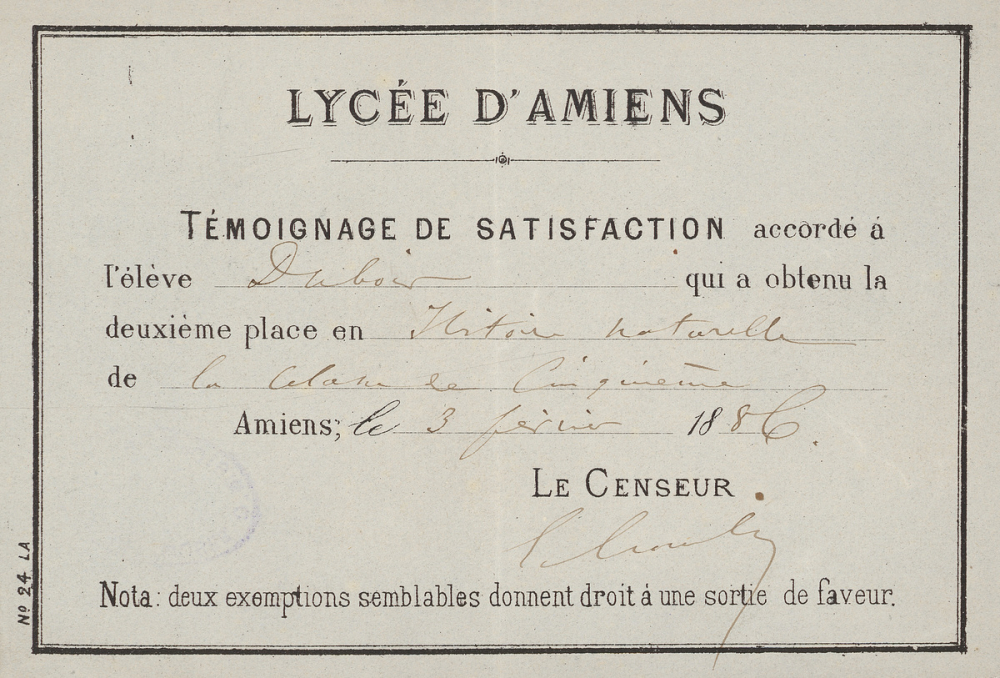 LYCÉE D'AMIENS
TÉMOIGNAGE DE SATISFACTION accordé á
l'élève Dubois qui a obtenu la
deuxième place en Histoire naturelle
de la classe de Cinquième
Amiens; le 3 février 1886.
LE CENSEUR
Nota: deux exemptions semblables donnent droit á une sortie de faveur.
Nº 24 LA